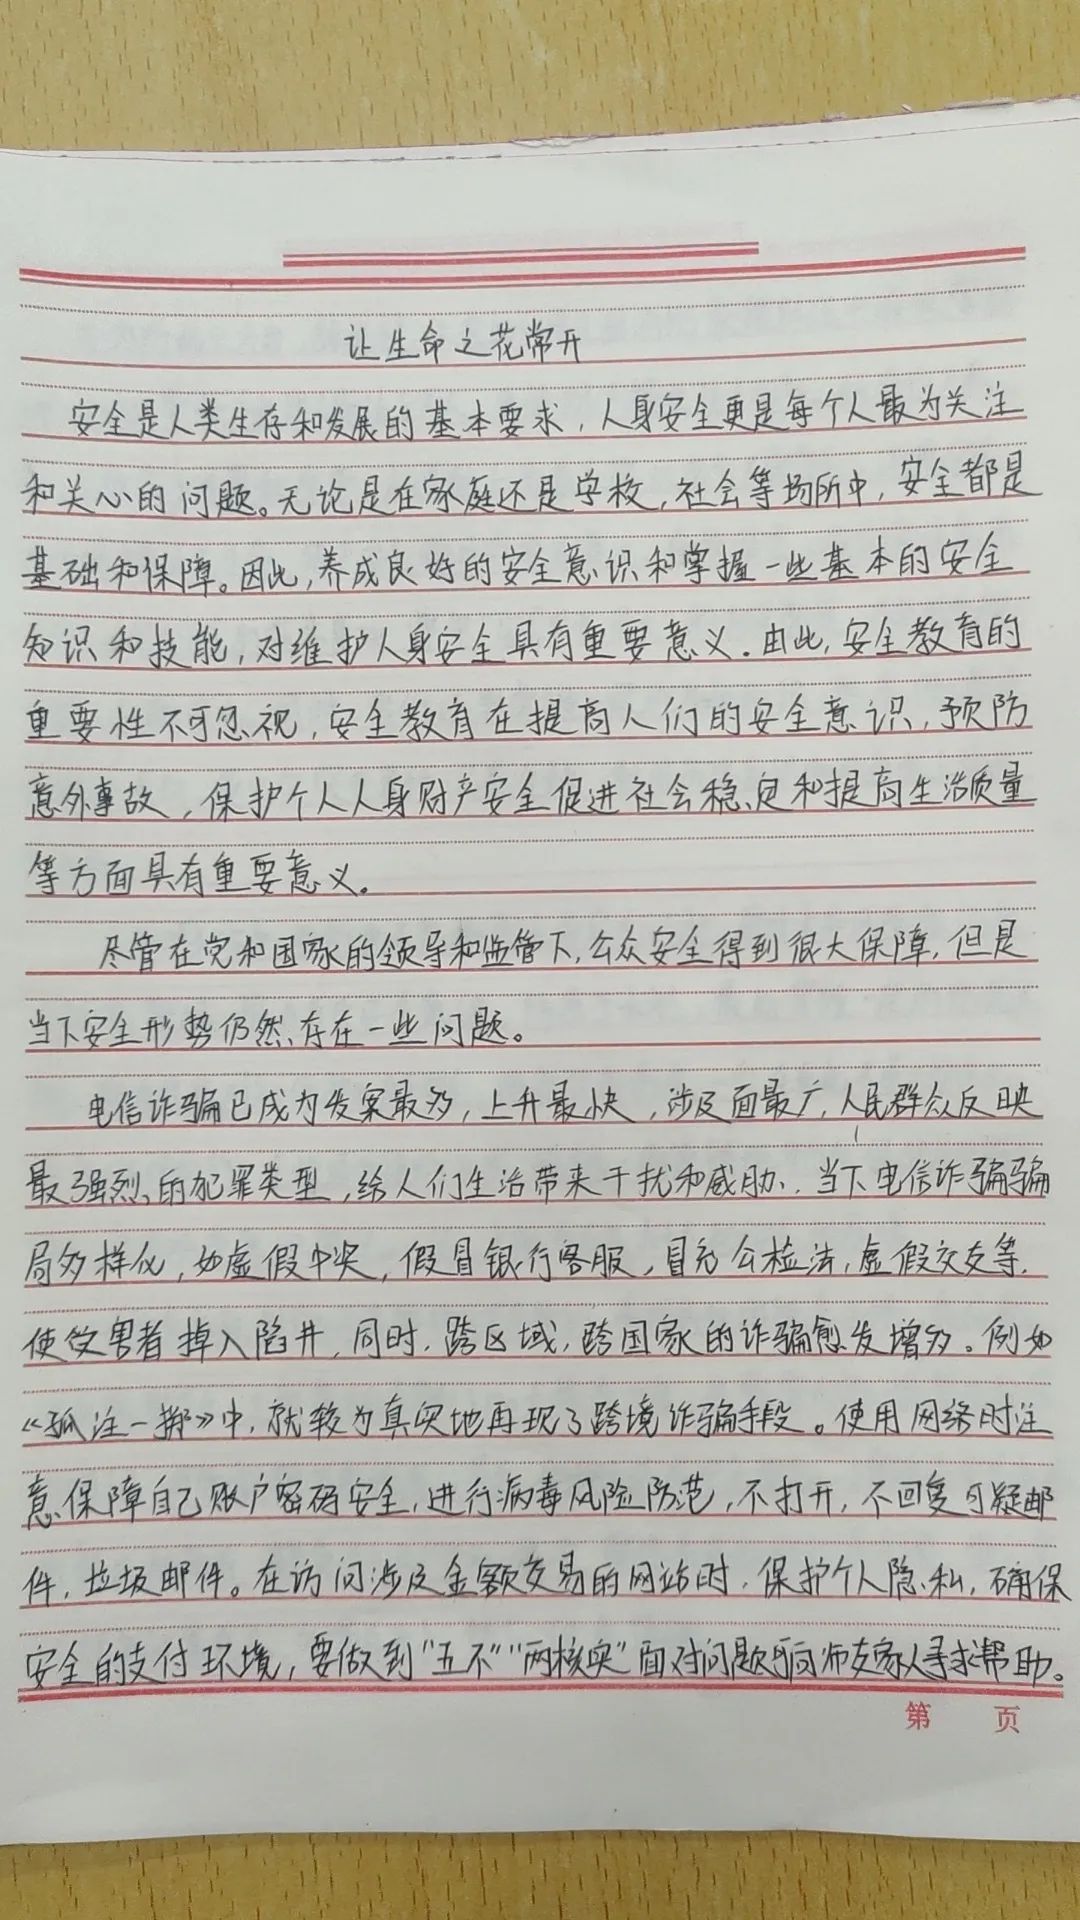 让生命之花常开
安全是人类生存和发展的基本要求，人身安全更是每个人最为关注
和关心的问题。无论是在家庭还是学校，社会等场所中，安全都是
基础和保障。因此，养成良好的安全意识和掌握一些基本的安全
知识和技能，对维护人身安全具有重要意义。由此，安全教育的
重要性不可忽视，安全教育在提高人们的安全意识，预防
意外事故，保护个人人身财产安全促进社会稳定和提高生活质量
等方面具有重要意义。
尽管在党和国家的领导和监管下，公众安全得到很大保障，但是
当下安全形势仍然存在一些问题。
电信诈骗已成为发案最多，上升最快，涉及面最广，人民群众反映
最强烈的犯罪类型，给人们生活带来干扰和威胁、当下电信诈骗骗
局多样化，如虚假中奖，假冒银行客服，冒充公检法，虚假交友等，
使受害者掉入陷井，同时，跨区域，跨国家的诈骗愈发增多。例如
《孤注一掷》中，就较为真实地再现了跨境诈骗手段。使用网络时注
意保障自己账户密码安全，进行病毒风险防范，不打开，不回复可疑邮
件，垃圾邮件。在访问涉及金额交易的网站时，保护个人隐私，确保
安全的支付环境，要做到“五不”“两核实”面对问题可向师友家人寻求帮助。
第 页